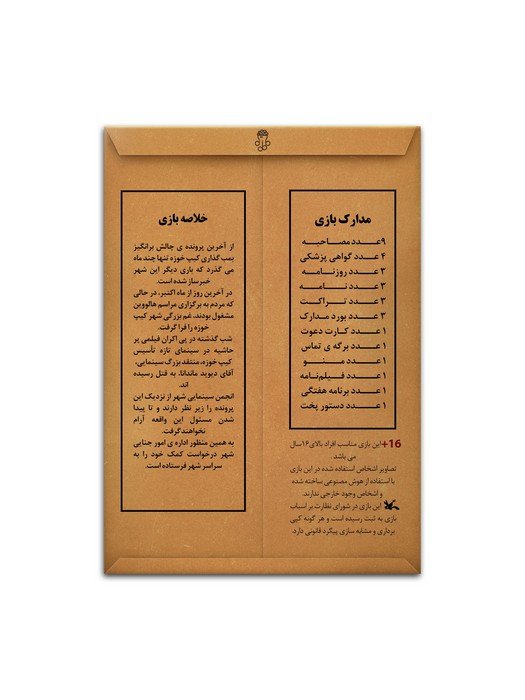 مدارک بازی
۹عـدد مصـاحبـه
۴ عدد گواهی پزشکی
۳ عـدد روزنـامـه
۳ عـدد نـامـه
۳ عـدد تـراکـت
۳ عدد بورد مدارک
۱ عدد کارت دعوت
۱ عدد برگه ی تماس
۱ عـدد منـو
۱ عدد فیلم‌نامه
۱ عدد برنامه هفتگی
۱ عدد دستور پخت
+16 این بازی مناسب افراد بالای۱۶سال
می باشد.
تصاویر اشخاص استفاده شده در این بازی
با استفاده از هوش مصنوعی ساخته شده
و اشخاص وجود خارجی ندارند.
این بازی در شورای نظارت بر اسباب
بازی به ثبت رسیده است و هر گونه کپی
برداری و مشابه سازی پیگرد قانونی دارد.
خلاصه بازی
از آخرین پرونده ی چالش برانگیز
بمب گذاری کیپ خوزه تنها چند ماه
می گذرد که باری دیگر این شهر
خبرساز شده است.
در آخرین روز از ماه اکتبر، در حالی
که مردم به برگزاری مراسم هالووین
مشغول بودند، غم بزرگی شهر کیپ
خوزه را فرا گرفت.
شب گذشته در پی اکران فیلمی پر
حاشیه در سینمای تازه تأسیس
کیپ خوزه، منتقد بزرگ سینمایی،
آقای دیوید ماندانا، به قتل رسیده
اند.
انجمن سینمایی شهر از نزدیک این
پرونده را زیر نظر دارند و تا پیدا
شدن مسئول این واقعه آرام
نخواهند گرفت.
به همین منظور اداره ی امور جنایی
شهر درخواست کمک خود را به
سراسر شهر فرستاده است.